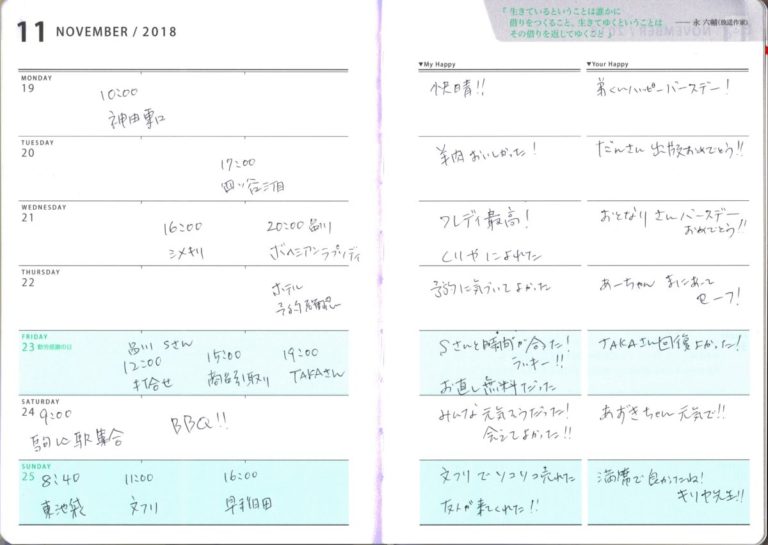 11 NOVEMBER / 2018
『 生きているということは誰かに
借りをつくること、生きてゆくということは
その借りを返してゆくこと 』
── 永 六輔(放送作家)
▼My Happy
▼Your Happy
MONDAY
19
10:00
神田東口
快晴!!
弟くんハッピーバースデー!
TUESDAY
20
17:00
四ッ谷三丁目
羊肉おいしかった!
だんさん 出版おめでとう!!
WEDNESDAY
21
16:00
シメキリ
20:00 品川
ボヘミアンラプソディ
フレディ最高!
くりやによれた
おとなりさんバースデー
おめでとう!!
THURSDAY
22
ホテル
予約確認
予約に気づいてよかった
あーちゃん まにあって
セーフ!
FRIDAY
23 勤労感謝の日
品川 Sさん
12:00
打合せ
15:00
商品引取り
19:00
TAKAさん
Sさんと時間が合った!
ラッキー!!
お直し無料だった
TAKAさん回復よかった!
SATURDAY
24
9:00
駒込駅集合
BBQ!!
みんな元気そうだった!
会えてよかった!!
あずきちゃん元気で!!
SUNDAY
25
8:40
東池袋
11:00
文フリ
16:00
早稲田
文フリでソコソコ売れた
友人が来てくれた!!
満席で良かったね!
キリヤ先生!!